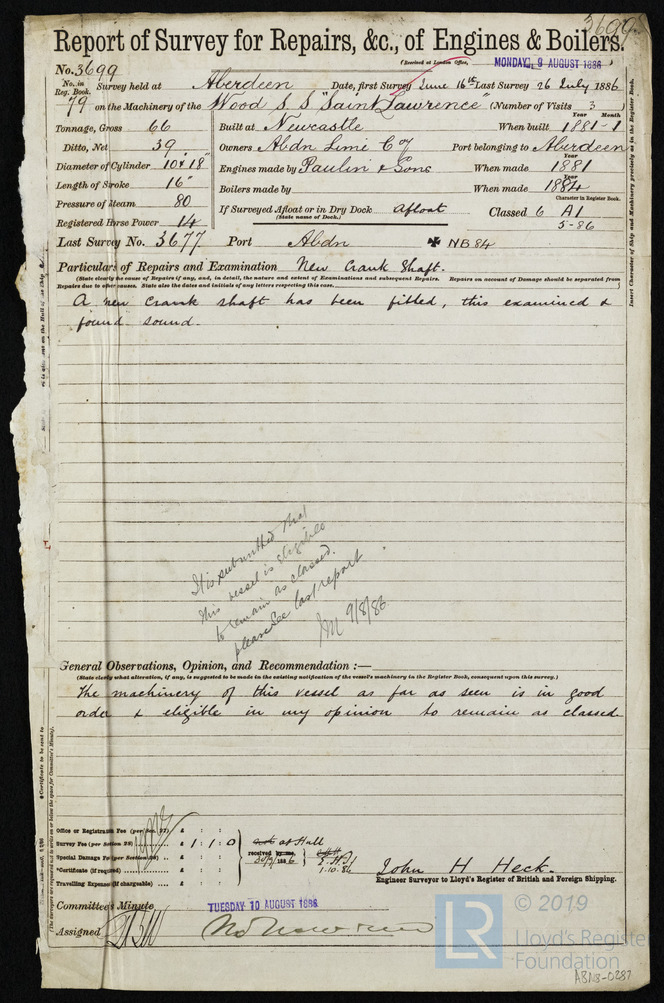 3699
Report of Survey for Repairs, &c., of Engines & Boilers.
(Received at London Office, MONDAY, 9 AUGUST 1886
No. 3699
No. in Reg. Book. Survey held at Aberdeen Date, first Survey June 16th Last Survey 26 July 1886
79 on the Machinery of the Wood S. S "Saint Lawrence" (Number of Visits 3 )
Tonnage, Gross 66
Ditto, Net 39
Diameter of Cylinder 10 & 18"
Length of Stroke 16"
Pressure of Steam 80
Registered Horse Power 14
Year Month
Built at Newcastle When built 1881-1
Owners Abdn Lime Coy Port belonging to Aberdeen
Year
Engines made by Paulin & Sons When made 1881
Year
Boilers made by When made 1884
Character in Register Book.
If Surveyed Afloat or in Dry Dock Afloat Classed 6 A1
(State name of Dock.)
5-86
Last Survey No. 3677 Port Abdn ✠ NB 84
Particulars of Repairs and Examination New Crank Shaft.
(State clearly the cause of Repairs if any, and, in detail, the nature and extent of Examinations and subsequent Repairs. Repairs on account of Damage should be separated from
Repairs due to other causes. State also the dates and initials of any letters respecting this case. )
A new crank shaft has been fitted, this examined &
found sound.
Insert Character of Ship and Machinery precisely as in the Register Book.
It is submitted that
this vessel is eligible
to remain as classed.
please see last report
9/8/86.
General Observations, Opinion, and Recommendation :—
(State clearly what alteration, if any, is suggested to be made in the existing notification of the vessel's machinery in the Register Book, consequent upon this survey.)
The machinery of this vessel as far as seen is in good
order & eligible in my opinion to remain as classed.
Certificate to be sent to
(The Surveyors are requested not to write on or below the space for Committee's Minute.
Office or Registration Fee (per Sec. 27) £ : :
Survey Fee (per Section 28) £ 1 : 1 : 0
Special Damage Fee (per Section 28) £ : :
*Certificate (if required) £ : :
Travelling Expenses (if chargeable) £ : :
at Hull
received by me,
1886
1.10.86
John H Heck.
Engineer Surveyor to Lloyd's Register of British and Foreign Shipping.
Committee's Minute TUESDAY 10 AUGUST 1886
Assigned
LR © 2019
Lloyd's Register
Foundation
ABN8-0287